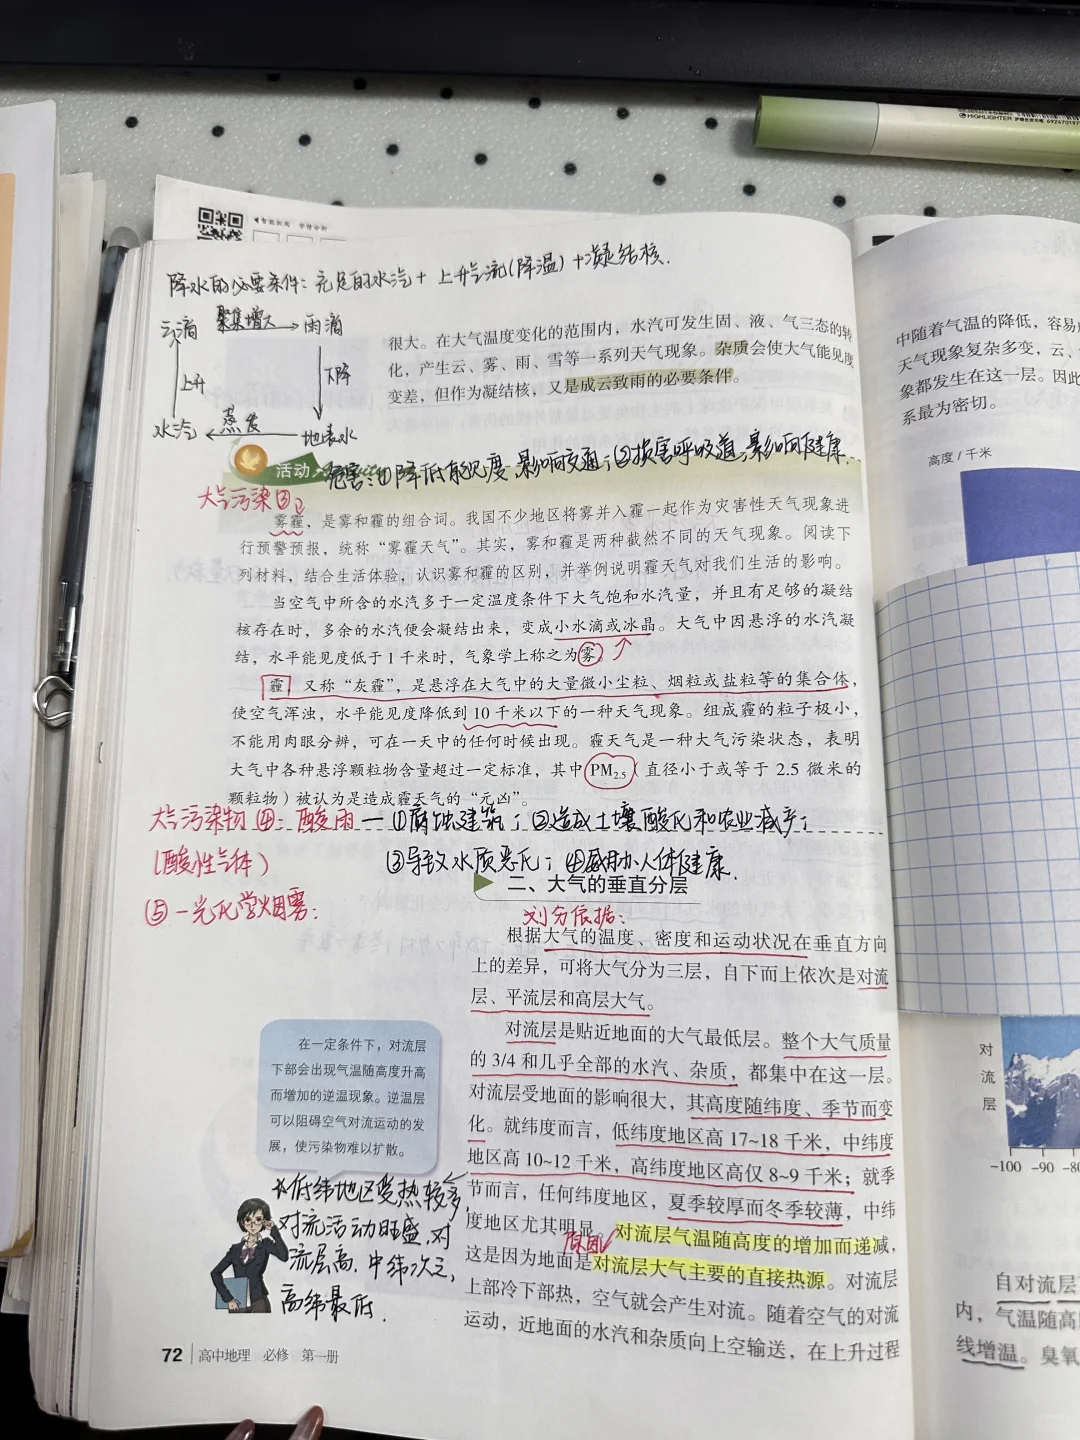 HIGHLIGHTER
降水的必要条件：充足的水汽＋上升气流(降温)＋凝结核.
云滴 聚集增大 雨滴
上升 下降
水汽 蒸发 地表水
很大。在大气温度变化的范围内，水汽可发生固、液、气三态的转
化，产生云、雾、雨、雪等一系列天气现象。杂质会使大气能见度
变差，但作为凝结核，又是成云致雨的必要条件。
活动
危害：①降低能见度,影响交通；②损害呼吸道,影响健康.
大气污染③
雾霾，是雾和霾的组合词。我国不少地区将雾并入霾一起作为灾害性天气现象进
行预警预报，统称“雾霾天气”。其实，雾和霾是两种截然不同的天气现象。阅读下
列材料，结合生活体验，认识雾和霾的区别，并举例说明霾天气对我们生活的影响。
当空气中所含的水汽多于一定温度条件下大气饱和水汽量，并且有足够的凝结
核存在时，多余的水汽便会凝结出来，变成小水滴或冰晶。大气中因悬浮的水汽凝
结，水平能见度低于1千米时，气象学上称之为雾。
霾，又称“灰霾”，是悬浮在大气中的大量微小尘粒、烟粒或盐粒等的集合体，
使空气浑浊，水平能见度降低到10千米以下的一种天气现象。组成霾的粒子极小，
不能用肉眼分辨，可在一天中的任何时候出现。霾天气是一种大气污染状态，表明
大气中各种悬浮颗粒物含量超过一定标准，其中PM2.5（直径小于或等于2.5微米的
颗粒物）被认为是造成霾天气的“元凶”。
大气污染物④：酸雨—①腐蚀建筑；②造成土壤酸化和农业减产；
(酸性气体)
③导致水质恶化；④威胁人体健康.
⑤－光化学烟雾：
二、大气的垂直分层
划分依据：
根据大气的温度、密度和运动状况在垂直方向
上的差异，可将大气分为三层，自下而上依次是对流
层、平流层和高层大气。
对流层是贴近地面的大气最低层。整个大气质量
的3/4和几乎全部的水汽、杂质，都集中在这一层。
对流层受地面的影响很大，其高度随纬度、季节而变
化。就纬度而言，低纬度地区高17~18千米，中纬度
地区高10~12千米，高纬度地区高仅8~9千米；就季
节而言，任何纬度地区，夏季较厚而冬季较薄，中纬
度地区尤其明显。对流层气温随高度的增加而递减，
原因
这是因为地面是对流层大气主要的直接热源。对流层
上部冷下部热，空气就会产生对流。随着空气的对流
运动，近地面的水汽和杂质向上空输送，在上升过程
在一定条件下，对流层
下部会出现气温随高度升高
而增加的逆温现象。逆温层
可以阻碍空气对流运动的发
展，使污染物难以扩散。
低纬地区受热较多,
对流活动旺盛,对
流层高.中纬次之,
高纬最低.
72 高中地理 必修 第一册
中随着气温的降低，容易
天气现象复杂多变，云、
象都发生在这一层。因此
系最为密切。
高度/千米
对
流
层
-100 -90 -80
自对流层
内，气温随高
线增温。臭氧